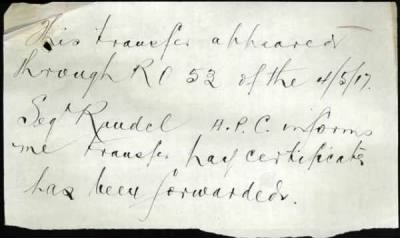 This transfer appeared
through RO 52 of the 4/5/17.
Segt Rundel A.P.C. informs
me transfer pay certificate
has been forwarded.